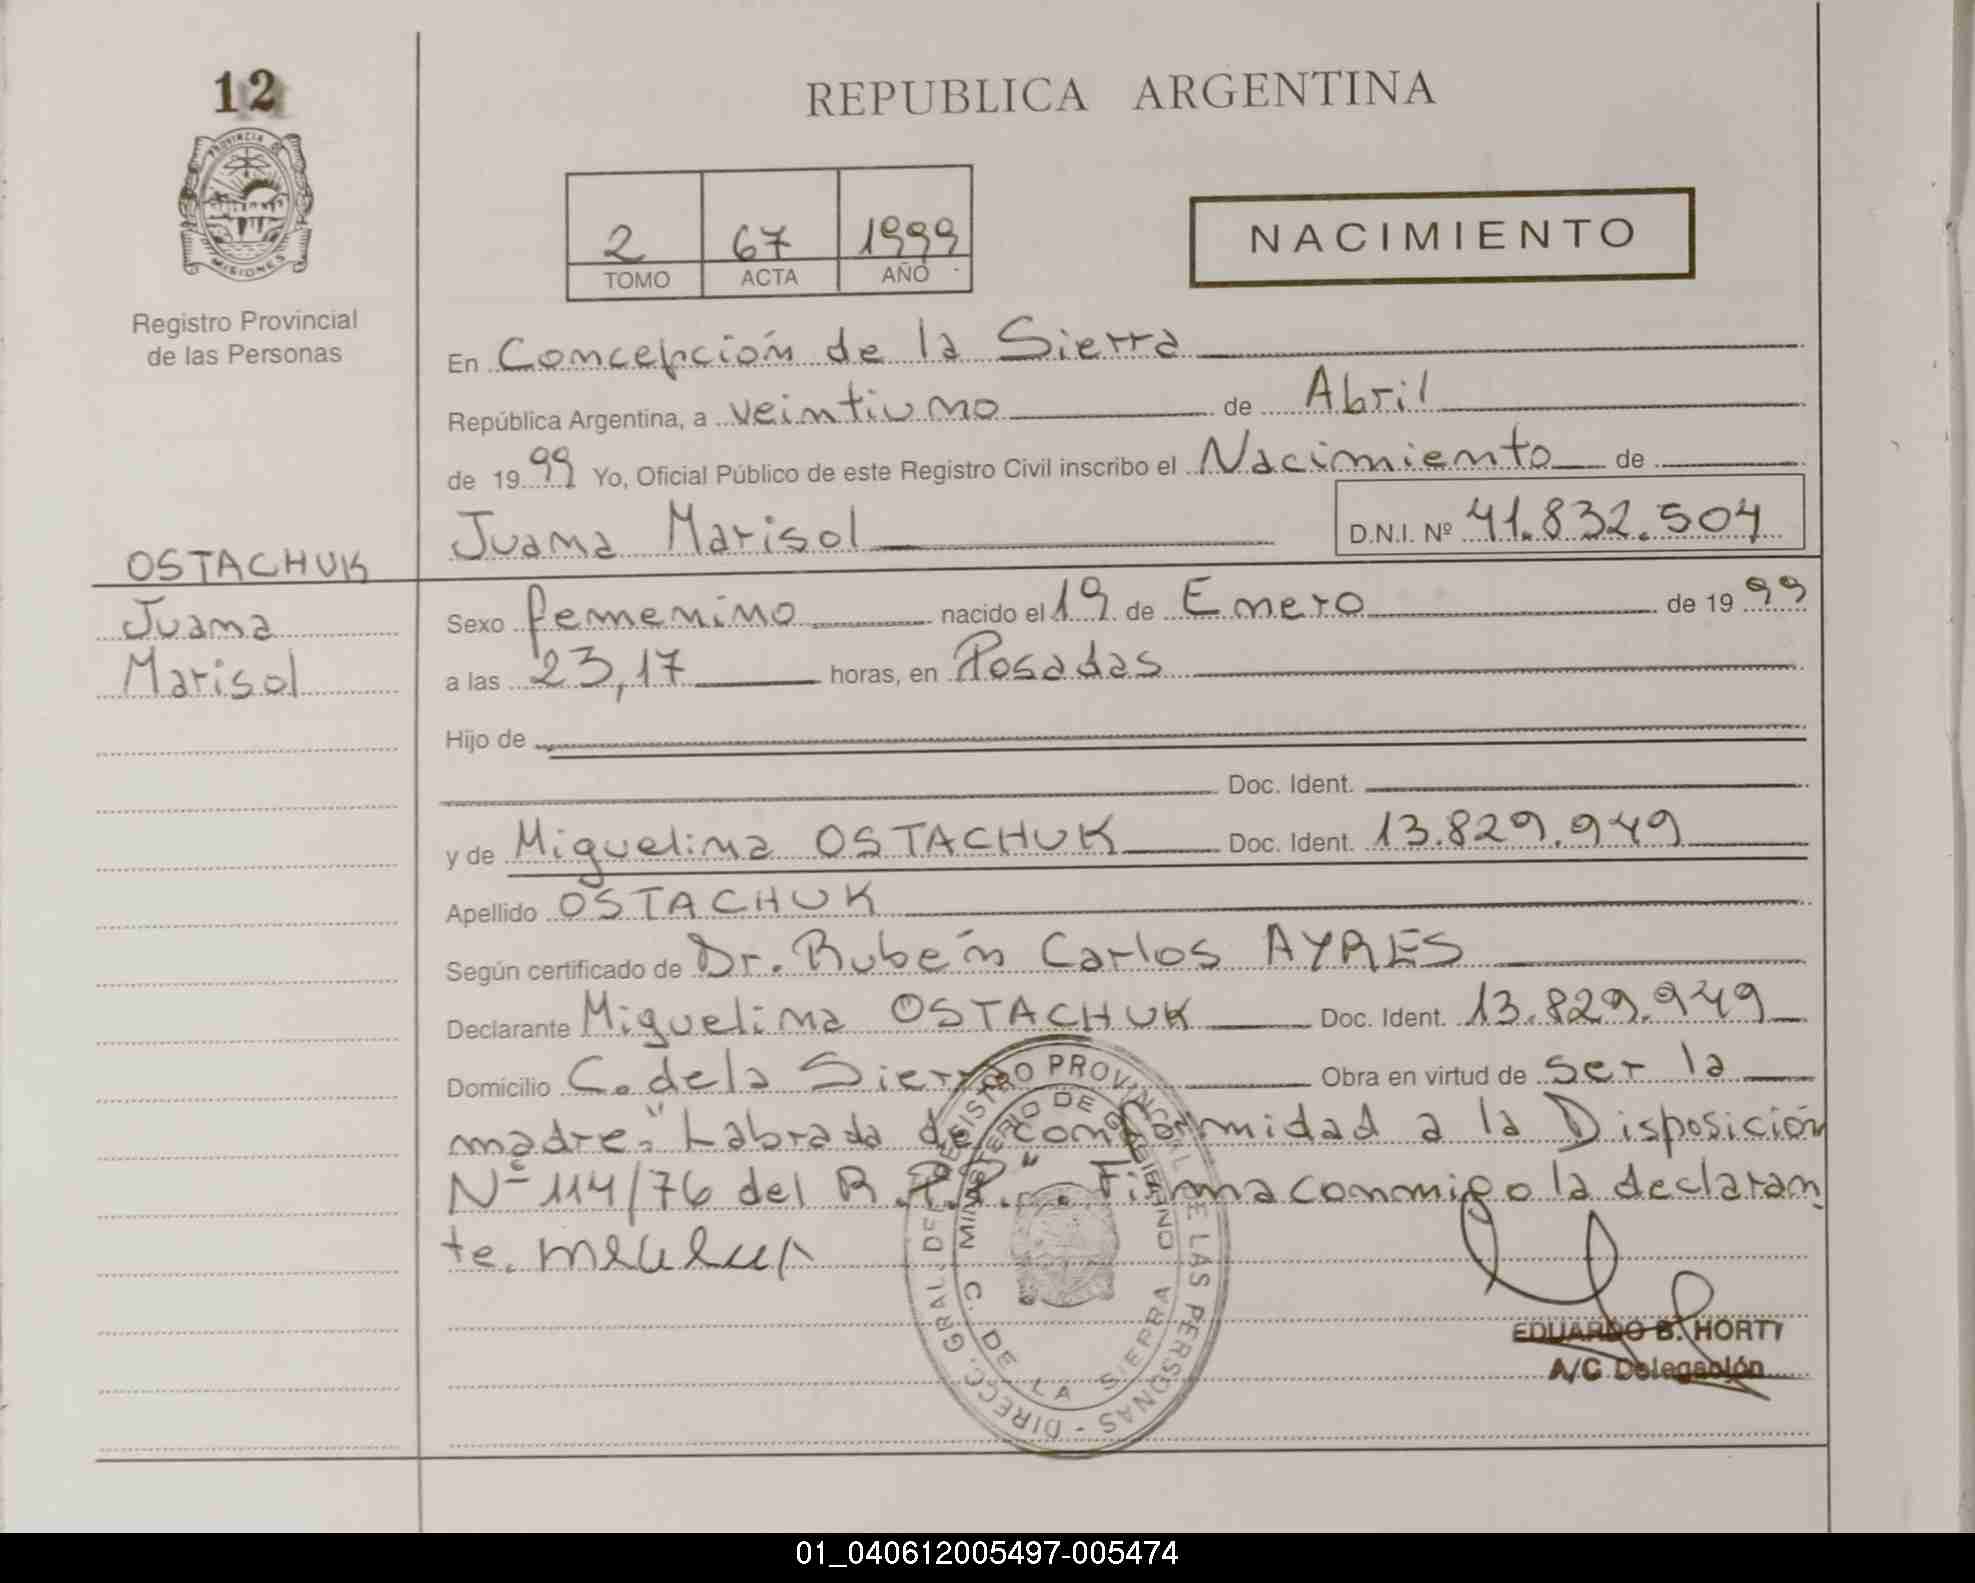 12
PROVINCIA DE
MISIONES
Registro Provincial
de las Personas
REPUBLICA ARGENTINA
2 67 1999
TOMO ACTA AÑO
NACIMIENTO
En Concepción de la Sierra
República Argentina, a veintiuno de Abril
de 1999 Yo, Oficial Público de este Registro Civil inscribo el Nacimiento de
Juana Marisol D.N.I. Nº 41.832.504
OSTACHUK
Juana
Marisol
Sexo femenino nacido el 19 de Enero de 1999
a las 23,17 horas, en Posadas
Hijo de
Doc. Ident.
y de Miguelina OSTACHUK Doc. Ident. 13.829.949
Apellido OSTACHUK
Según certificado de Dr. Rubén Carlos AYRES
Declarante Miguelina OSTACHUK Doc. Ident. 13.829.949
Domicilio C. de la Sierra Obra en virtud de ser la
madre. "Labrada de conformidad a la Disposición
Nº 114/76 del R.P.P.". Firma conmigo la declaran
te.
DIRECC. GRAL. DE REGISTRO PROVINCIAL DE LAS PERSONAS -
MINISTERIO DE GOBIERNO
C. DE LA SIERRA
EDUARDO B. HORTY
A/C Delegación
01_040612005497-005474